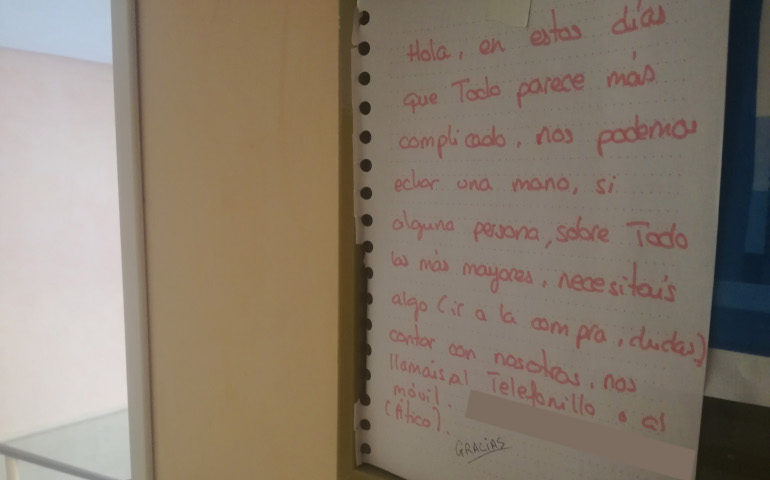 Hola, en estos días
que Todo parece más
complicado, nos podemos
echar una mano, si
alguna persona, sobre Todo
las más mayores, necesitais
algo (ir a la compra, dudas)
contar con nosotros, nos
llamais al Telefonillo o al
móvil.
(Ático).
GRACIAS